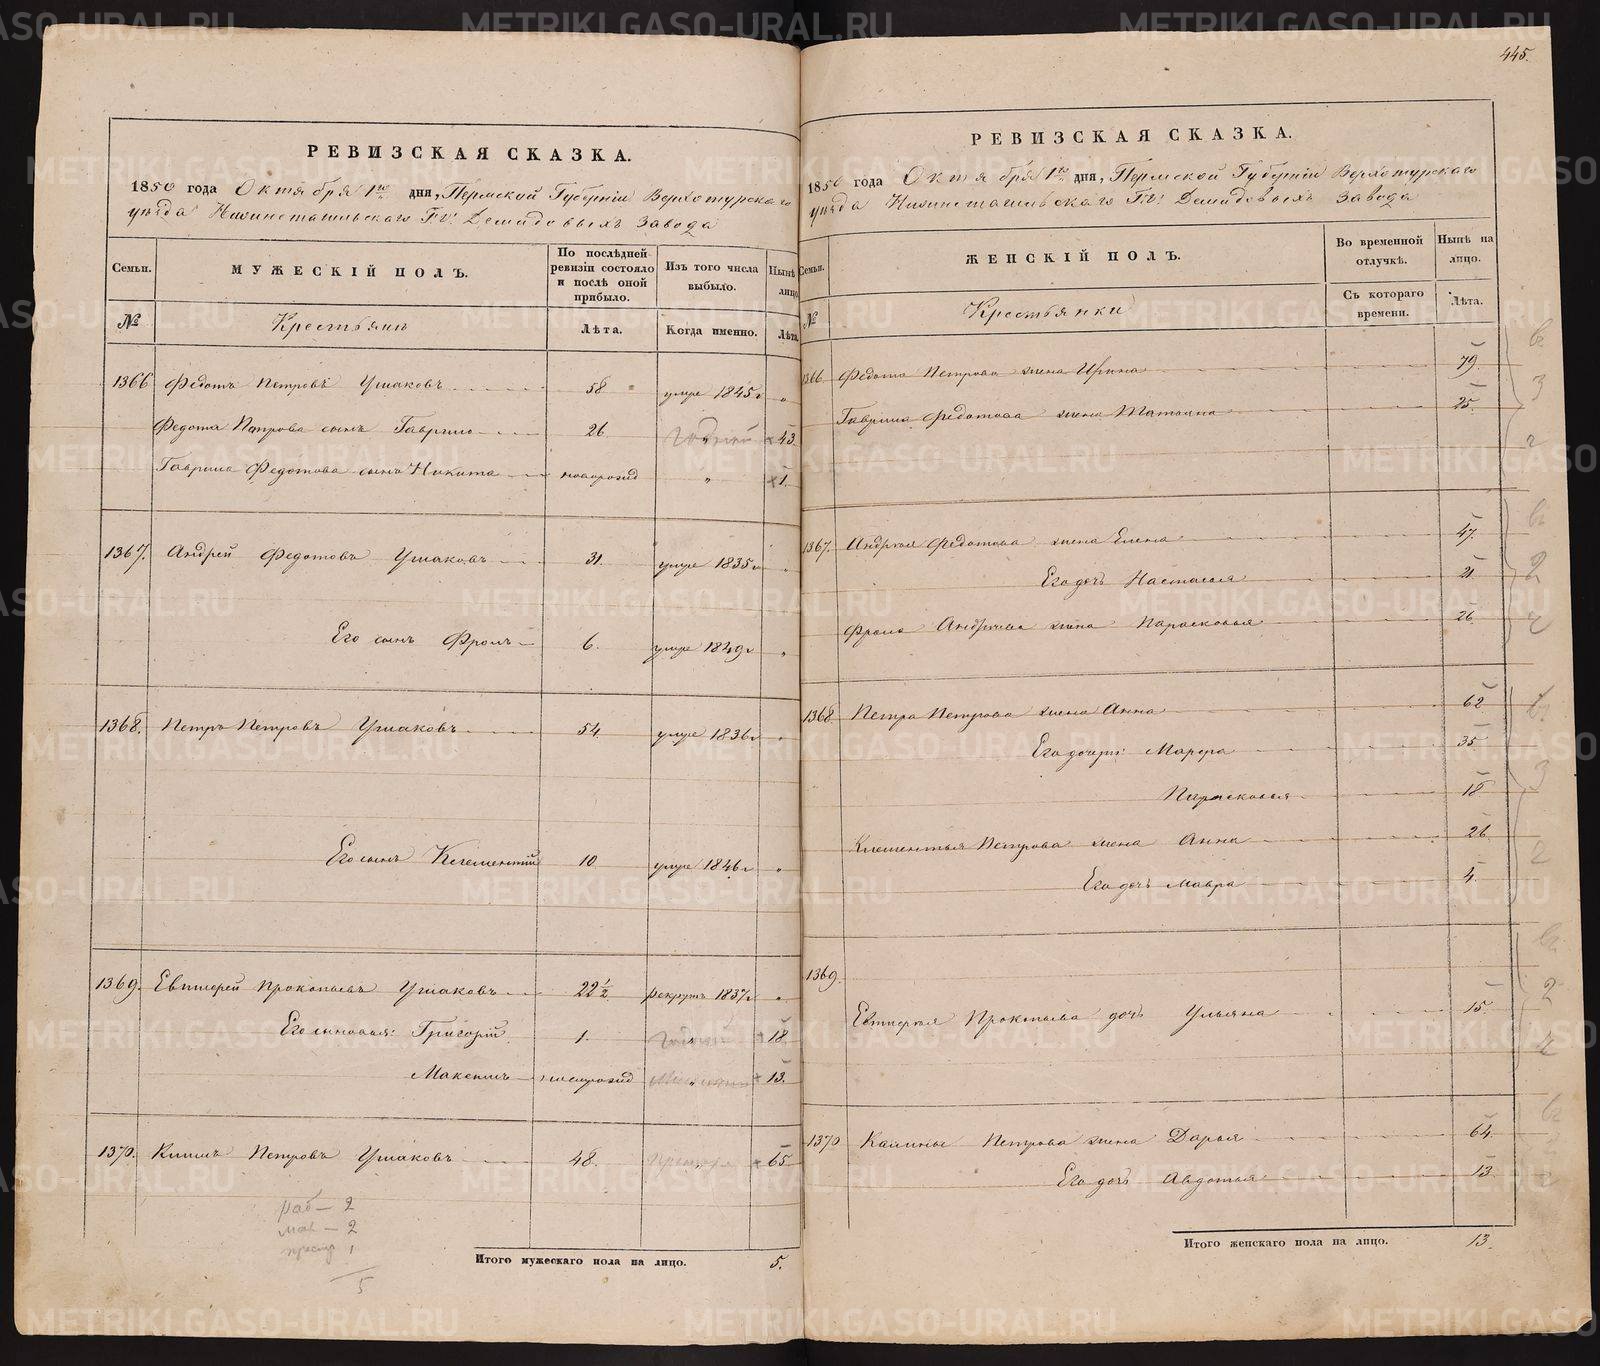 445.
РЕВИЗСКАЯ СКАЗКА.
1850 года Октября 1го дня, Пермской Губерніи Верхотурскаго
уѣзда Нижнетагильскаго Гг. Демидовыхъ Завода
Семьи. МУЖЕСКІЙ ПОЛЪ. По послѣдней ревизіи состояло и послѣ оной прибыло. Изъ того числа выбыло. Нынѣ лицо
№ Крестьянъ Лѣта. Когда именно. Лѣта.
1366 Федотъ Петровъ Ушаковъ 58 умре 1845 г „
Федота Петрова сынъ Гаврило 26 годный 43
Гаврила Федотова сынъ Никита новорожд „ 1.
1367. Андрей Федотовъ Ушаковъ 31. умре 1835 г „
Его сынъ Фролъ 6. умре 1849 г „
1368. Петръ Петровъ Ушаковъ 54. умре 1836 г „
Его сынъ Клементій 10 умре 1846 г „
1369. Евтифей Прокопьевъ Ушаковъ 22½ рекрутъ 1837 г „
Его сыновья: Григорій 1. 18.
Максимъ новорожд „ 13.
1370. Петровъ Ушаковъ 48. „ 65
раб — 2
мал — 2
1
5
Итого мужескаго пола на лицо. 5.
РЕВИЗСКАЯ СКАЗКА.
1850 года Октября 1го дня, Пермской Губерніи Верхотурскаго
уѣзда Нижнетагильскаго Гг. Демидовыхъ Завода
Семьи. ЖЕНСКІЙ ПОЛЪ. Во временной отлучкѣ. Нынѣ на лицо.
№ Крестьянки Съ котораго времени. Лѣта.
1366. Федота Петрова жена Ирина 79.
Гаврила Федотова жена Татьяна 25.
1367. Андрея Федотова жена Елена 47.
Его дочь Настасья 21.
Фрола Андреева жена Парасковья 26.
1368 Петра Петрова жена Анна 62
Его дочери: Марфа 35
Парасковья 18
Клементья Петрова жена Анна 26
Его дочь Мавра 4.
1369.
Евтифея Прокопьева дочь Ульяна 15.
1370 Калины Петрова жена Дарья 64.
Его дочь Авдотья 13
Итого женскаго пола на лицо. 13.
METRIKI.GASO-URAL.RU